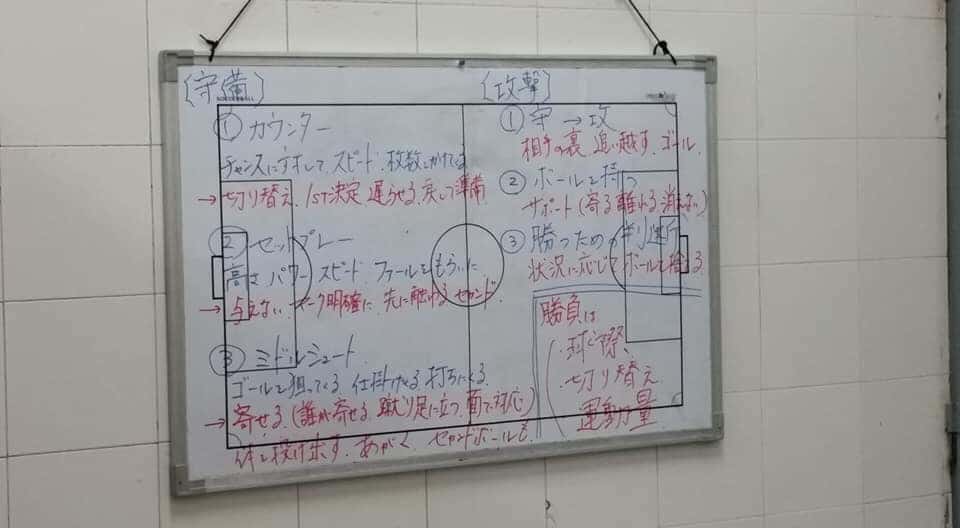 〔守備〕
① カウンター
チャンスに対してスピード、枚数をかけてくる
→ 切り替え、1st決定 遅らせる、戻して準備
② セットプレー
高さ パワー スピード ファールをもらいに
→ 与えない マーク明確に 先に触れる セカンド
③ ミドルシュート
ゴールを狙ってくる 仕掛けてくる 打ちにくる
→ 寄せる(誰が寄せる 蹴り足に立つ 面で対応)
体を投げ出す、あがく、セカンドボールも
〔攻撃〕
① 守→攻
相手の裏、追い越す、ゴール
② ボールを持つ
サポート(寄る 離れる 消えない)
③ 勝つための
状況に応じてボールを捨る
勝負は
・球際、
・切り替え
運動量